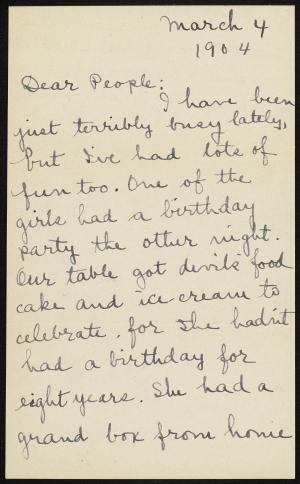 March 4
1904
Dear People:
I have been
just terribly busy lately,
but I've had lots of
fun too. One of the
girls had a birthday
party the other night.
Our table got devils food
cake and ice cream to
celebrate, for she hadn't
had a birthday for
eight years. She had a
grand box from home